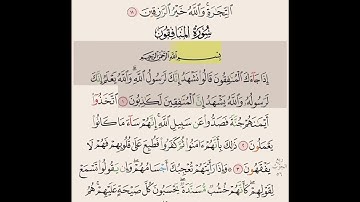 ٱلتِّجَـٰرَةِ وَٱللَّهُ خَيْرُ ٱلرَّٰزِقِينَ ١١
سُورَةُ المُنَافِقُونَ
بِسْمِ ٱللَّهِ ٱلرَّحْمَـٰنِ ٱلرَّحِيمِ
إِذَا جَآءَكَ ٱلْمُنَـٰفِقُونَ قَالُوا۟ نَشْهَدُ إِنَّكَ لَرَسُولُ ٱللَّهِ وَٱللَّهُ يَعْلَمُ إِنَّكَ
لَرَسُولُهُۥ وَٱللَّهُ يَشْهَدُ إِنَّ ٱلْمُنَـٰفِقِينَ لَكَـٰذِبُونَ ١ ٱتَّخَذُوٓا۟
أَيْمَـٰنَهُمْ جُنَّةً فَصَدُّوا۟ عَن سَبِيلِ ٱللَّهِ إِنَّهُمْ سَآءَ مَا كَانُوا۟
يَعْمَلُونَ ٢ ذَٰلِكَ بِأَنَّهُمْ ءَامَنُوا۟ ثُمَّ كَفَرُوا۟ فَطُبِعَ عَلَىٰ قُلُوبِهِمْ فَهُمْ لَا
يَفْقَهُونَ ٣ وَإِذَا رَأَيْتَهُمْ تُعْجِبُكَ أَجْسَامُهُمْ وَإِن يَقُولُوا۟ تَسْمَعْ
لِقَوْلِهِمْ كَأَنَّهُمْ خُشُبٌ مُّسَنَّدَةٌ يَحْسَبُونَ كُلَّ صَيْحَةٍ عَلَيْهِمْ هُمُ